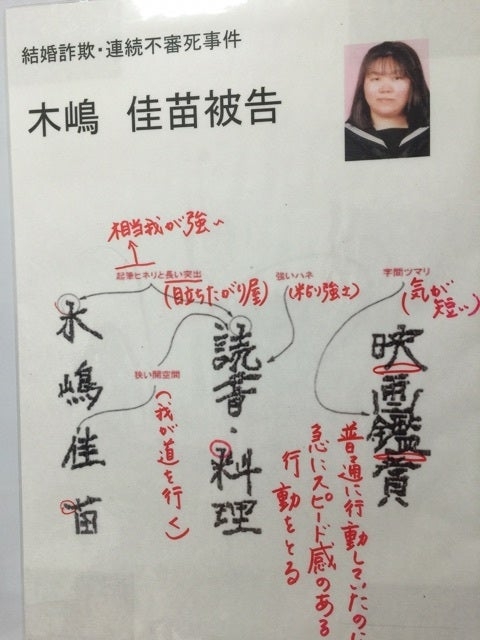 結婚詐欺・連続不審死事件
木嶋 佳苗被告
相当我が強い
起筆ヒネリと長い突出
(目立ちたがり屋)
強いハネ
字間ツマリ
(気が短い)
木嶋佳苗
狭い開空間
(我が道を行く)
読書・料理
映画鑑賞
普通に行動していたのに
急にスピード感のある
行動をとる